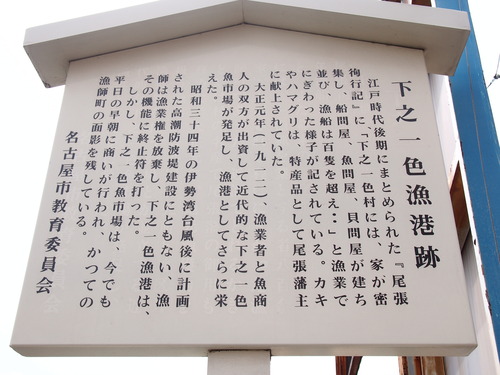 下之一色漁港跡
江戸時代後期にまとめられた『尾張
徇行記』に「下之一色村には、家が密
集し、船問屋、魚問屋、貝問屋が建ち
並び、漁船は百隻を超え・・」と漁業で
にぎわった様子が記されている。カキ
やハマグリは、特産品として尾張藩主
に献上されていた。
大正元年(一九一二)、漁業者と魚商
人の双方が出資して近代的な下之一色
魚市場が発足し、漁港としてさらに栄
えた。
昭和三十四年の伊勢湾台風後に計画
された高潮防波堤建設にともない、漁
師は漁業権を放棄し、下之一色漁港は、
その機能に終止符を打った。
しかし、下之一色魚市場は、今でも
平日の早朝に商いが行われ、かつての
漁師町の面影を残している。
名古屋市教育委員会